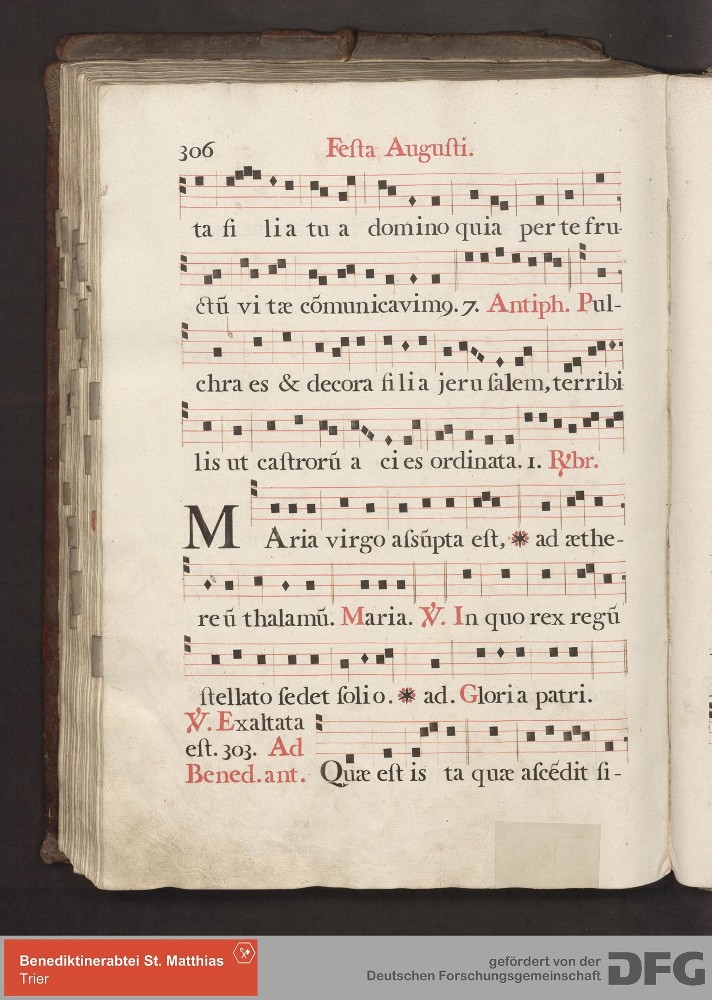 306 Feſta Auguſti.
ta fi lia tu a domino quia per te fru-
ctũ vi tæ cõmunicavim9. 7. Antiph. Pul-
chra es & decora filia jeruſalem, terribi
lis ut caſtrorũ a cies ordinata. 1. ℞br.
MAria virgo aſsũpta eſt, * ad æthe-
reũ thalamũ. Maria. ℣. In quo rex regũ
ſtellato ſedet ſolio. * ad. Gloria patri.
℣. Exaltata
eſt. 303. Ad
Bened. ant. Quæ eſt is ta quæ aſcẽdit ſi-
Benediktinerabtei St. Matthias
Trier
gefördert von der
Deutschen Forschungsgemeinschaft DFG